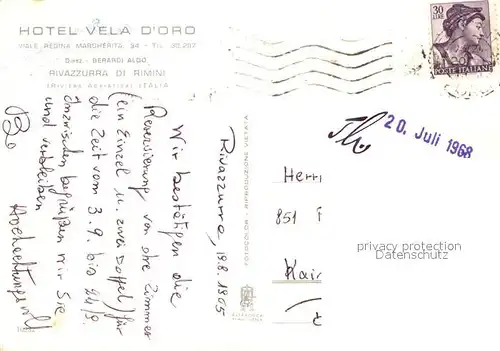 HOTEL VELA D'ORO
VIALE REGINA MARGHERITA, 94 - TEL. 30.257
Direz. BERARDI ALDO
RIVAZZURRA DI RIMINI
(RIVIERA ADRIATICA) ITALIA
Rivazzurra, 19.8.1965
Wir bestätigen die
Reservierung von drei Zimmer
(ein Einzel u. zwei Doppel) für
die Zeit vom 3.9. bis 24/9.
Inzwischen begrüßen wir Sie
und verbleiben
Hochachtungsvoll
FOTOCOLOR - RIPRODUZIONE VIETATA
30
LIRE
POSTE ITALIANE
20. Juli 1968
Herrn
851
privacy protection
Datenschutz